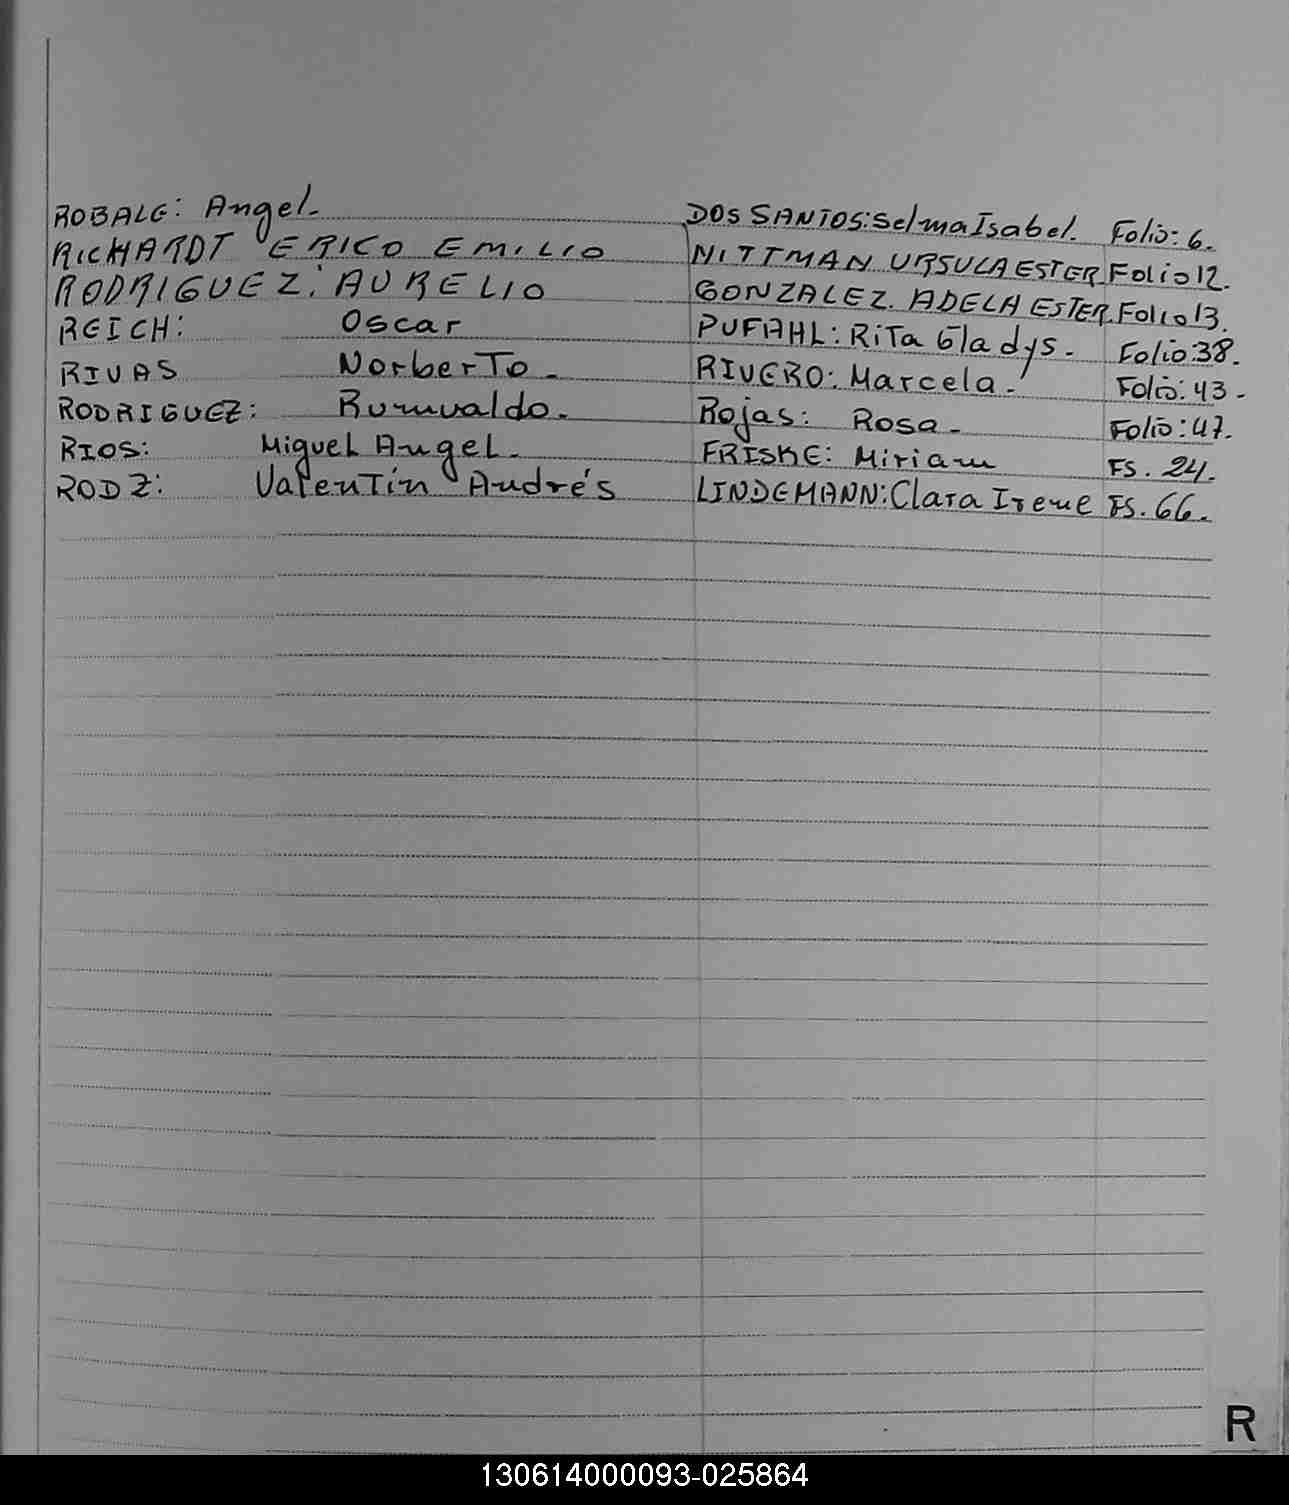 ROBALE: Angel. DOS SANTOS: Selma Isabel. Folio: 6.
RICHARDT ERICO EMILIO NITTMAN URSULA ESTER Folio 12.
RODRIGUEZ: AURELIO GONZALEZ. ADELA ESTER. Folio 13.
REICH: Oscar PUFAHL: Rita Gladys. Folio 38.
RIVAS Norberto. RIVERO: Marcela. Folio: 43.
RODRIGUEZ: Rumualdo. Rojas: Rosa. Folio: 47.
RIOS: Miguel Angel. FRISKE: Miriam FS. 24.
RODZ: Valentín Andrés LINDEMANN: Clara Irene FS. 66.
R
130614000093-025864